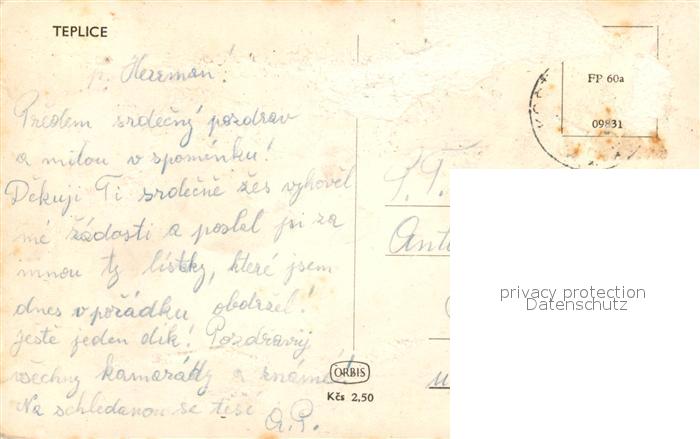 TEPLICE
p. Herman!
Předem srdečný pozdrav
a milou v spomínku!
Děkuji Ti srdečně žes vyhověl
mé žádosti a poslal jsi za
mnou ty lístky, které jsem
dnes v pořádku obdržel!
ještě jeden dík! Pozdravuj
všechny kamarády a známé!
Na schledanou se těší
A.P.
FP 60a
09831
Ant
ORBIS
Kčs 2,50
privacy protection
Datenschutz